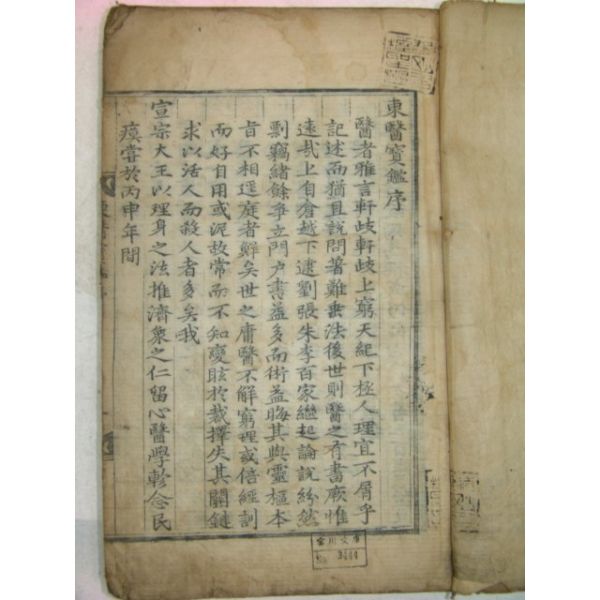 東醫寶鑑序
醫者雅言軒歧軒歧上窮天紀下極人理宜不屑乎
記述而猶且說問著難垂法後世則醫之有書厥惟
遠哉上自倉越下逮劉張朱李百家繼起論說紛然
剽竊緖餘爭立門戶書益多而術益晦其與靈樞本
旨不相逕庭者鮮矣世之庸醫不解窮理或倍經訓
而好自用或泥故常而不知變眩於裁擇失其關鍵
求以活人而殺人者多矣我
宣宗大王以理身之法推濟衆之仁留心醫學軫念民
瘼嘗於丙申年間
3444